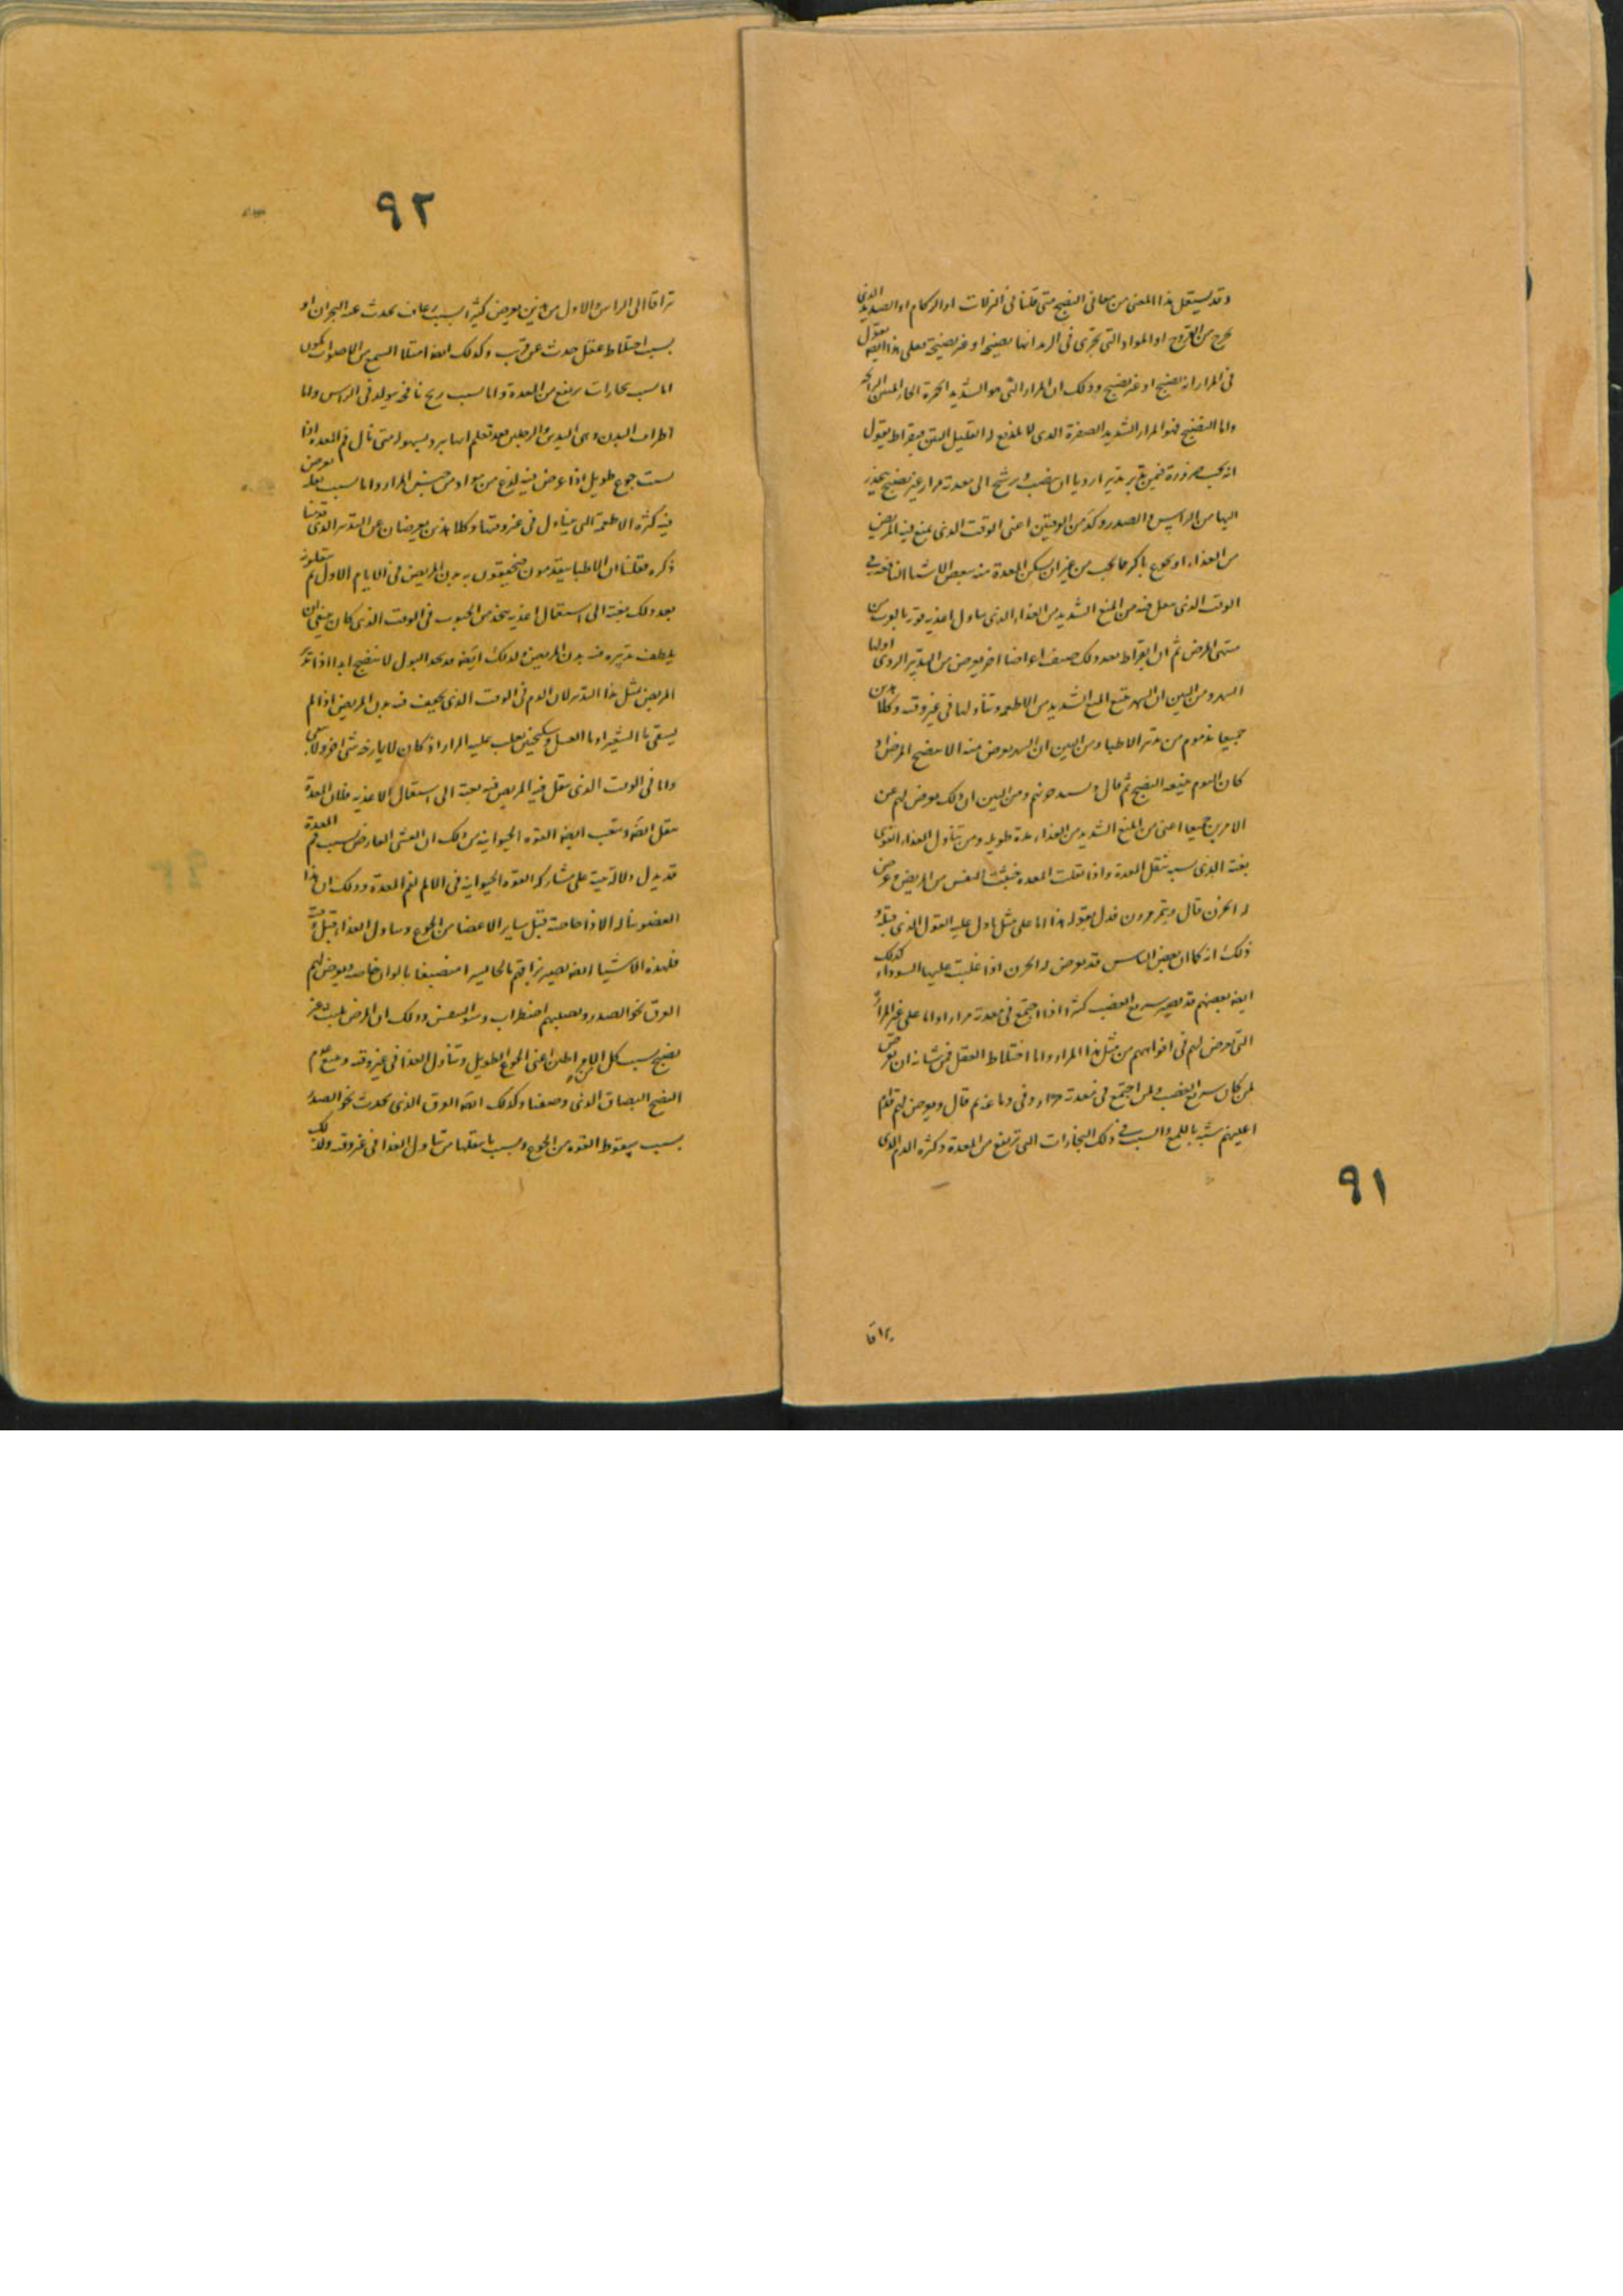 وقد يستعمل هذا المعنى من معانى النضيج متى قلنا فى النزلات او الزكام او الصديد الذى
يخرج من القروح او المواد التى تجرى فى الرمد انها نضيجة او غير نضيجة فعلى هذا ايضه يقول
فى المرار انه نضيج او غير نضيج وذلك ان المرار التى هو الشديد الحمرة الحار المنتن الرائحه
واما النضيج فهو المرار الشديد الصفرة الذى لا لذع له القليل النتن فبقراط يقول
انه يجب ضرورة فيمن يدبر تدبير ارديا ان ينصب ويرشح الى معدته مرار غير نضيج ينحدر
اليها من الراس والصدر وكذ من الوقتين اعنى الوقت الذى يمنع فيه المريض
من الغذاء او يجوع باكثر مما يجب من غير ان يسكن المعدة منه ببعض الاشيا النافعه فى
الوقت الذى ينقل فيه من المنع الشديد من الغذاء الذى يناول اغذيه قوية بالقرب من
منتهى المرض ثم ان ابقراط بعد ذلك يصف اعراضا اخر يعرض من التدبير الردى اولها
السهر ومن البين ان السهر يتبع المنع الشديد من الاطعمه وتناولها فى غير وقته وكلا هذين
جميعا مذموم من تدبير الاطبا ومن البين ان السهر يعرض منه الا ينضج المرض اذ
كان النوم يتبعه النضيج ثم قال ويسدجونهم ومن البين ان ذلك يعرض لهم عن
الامرين جميعا اعنى من المنع الشديد من الغذاء مدة طويله ومن تناول الغذاء القوى
بغتة الذى بسببه تثقل المعدة واذا ثقلت المعده خبثت النفس من المريض وعرض
له الحزن قال ويتمرمرون فدل بقوله هذا اما على مثل ما دل عليه القول الذى قبله و
ذلك انه كما ان بعض الناس قد يعرض له الحزن اذا غلبت عليها السوداء كذلك
ايضه بعضهم قد يصير سريع الغضب كثيرا اذا اجتمع فى معدته مرار واما على غير المرارة
التى تعرض لهم فى افواههم من مثل هذا المرار واما اختلاط العقل فمن شانه ان يعرض
لمن كان سريع الغضب ولمن اجتمع فى معدته مرار وفى دماغه ثم قال ويعرض لهم قدام
اعينهم شبه باللمع والسبب فى ذلك البخارات التى ترتفع من المعدة وكثرة الدم الذى
٩١
براقا
٩٢
تراقا الى الراس والاول من هذين يعرض كثيرا بسبب رعاف يحدث عنه البحران او
بسبب اختلاط عقل حدث عن قرب وكذلك ايضه امتلا السمع من الاصوات يكون
اما بسبب بخارات يرتفع من المعدة واما بسبب ريح نافخه يتولد فى الراس واما
اطراف البدن وهى اليدين والرجلين فقد تعلم انها يبرد بسهوله متى نال فم المعده اذا
بسبب جوع طويل اذا عرض فيه لذع من مواد من جنس المرار واما بسبب ثقل يعرض
فيه كثرة الاطعمة التى يتناول فى غير وقتها وكلا هذين يعرضان عن التدبير الذى قدمنا
ذكره فقلنا ان الاطبا يتقدمون فيجففون به بدن المريض فى الايام الاول ثم ينقلونه
بعد ذلك بغتة الى استعمال اغذيه يتخذ من الحبوب فى الوقت الذى كان ينبغى ان
يلطف تدبيره فيه بدن المريض ولذلك ايضه قد نجد البول لا ينضج ابدا اذا تدبر
المريض بمثل هذا التدبير لان الدم فى الوقت الذى يجفف فيه بدن المريض اذا لم
يسقى ما الشعير او ما العسل وسكنجبين يغلب عليه المرار اذ كان لا يمازجه شى اخر ولا يسقى
واما فى الوقت الذى ينقل فيه المريض فيه بغتة الى استعمال الاغذيه فلان المعدة
يثقل ايضه ويتعب ايضه القوه الحيوانيه من ذلك ان الغشى العارض بسبب فم المعدة
قد يدل دلالة بينة على مشاركه القوه الحيوانيه فى الالم لفم المعدة وذلك ان هذا
العضو يناله الاذا خاصة قبل ساير الاعضا من الجوع وتناول الغذاء قبل وقته
فلهذه الاشيا ايضه يصير بزاقهم بالحاليه منصبغا بالوان خاصه ويعرض لهم
العرق نحو الصدر ويصيبهم اضطراب وسو النفس وذلك ان المرض يلبث غير
نضيج بسبب كل الامرين اعنى الجوع الطويل وتناول الغذا فى غير وقته ويتبع عدم
النضج البصاق الذى وصفنا وكذلك ايضه العرق الذى يحدث نحو الصدر
بسبب سقوط القوه من الجوع وبسبب ما يثقلها من تناول الغذا فى غير وقته ولذلك